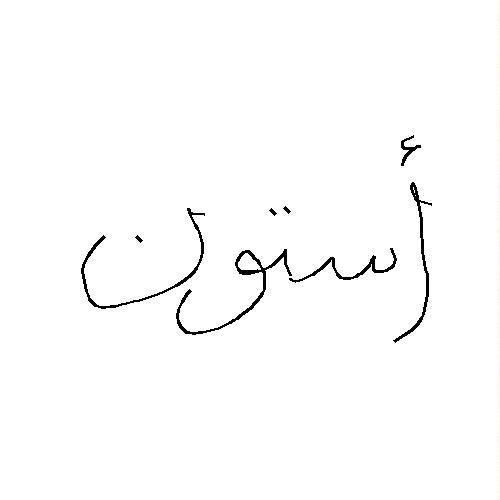 أستون